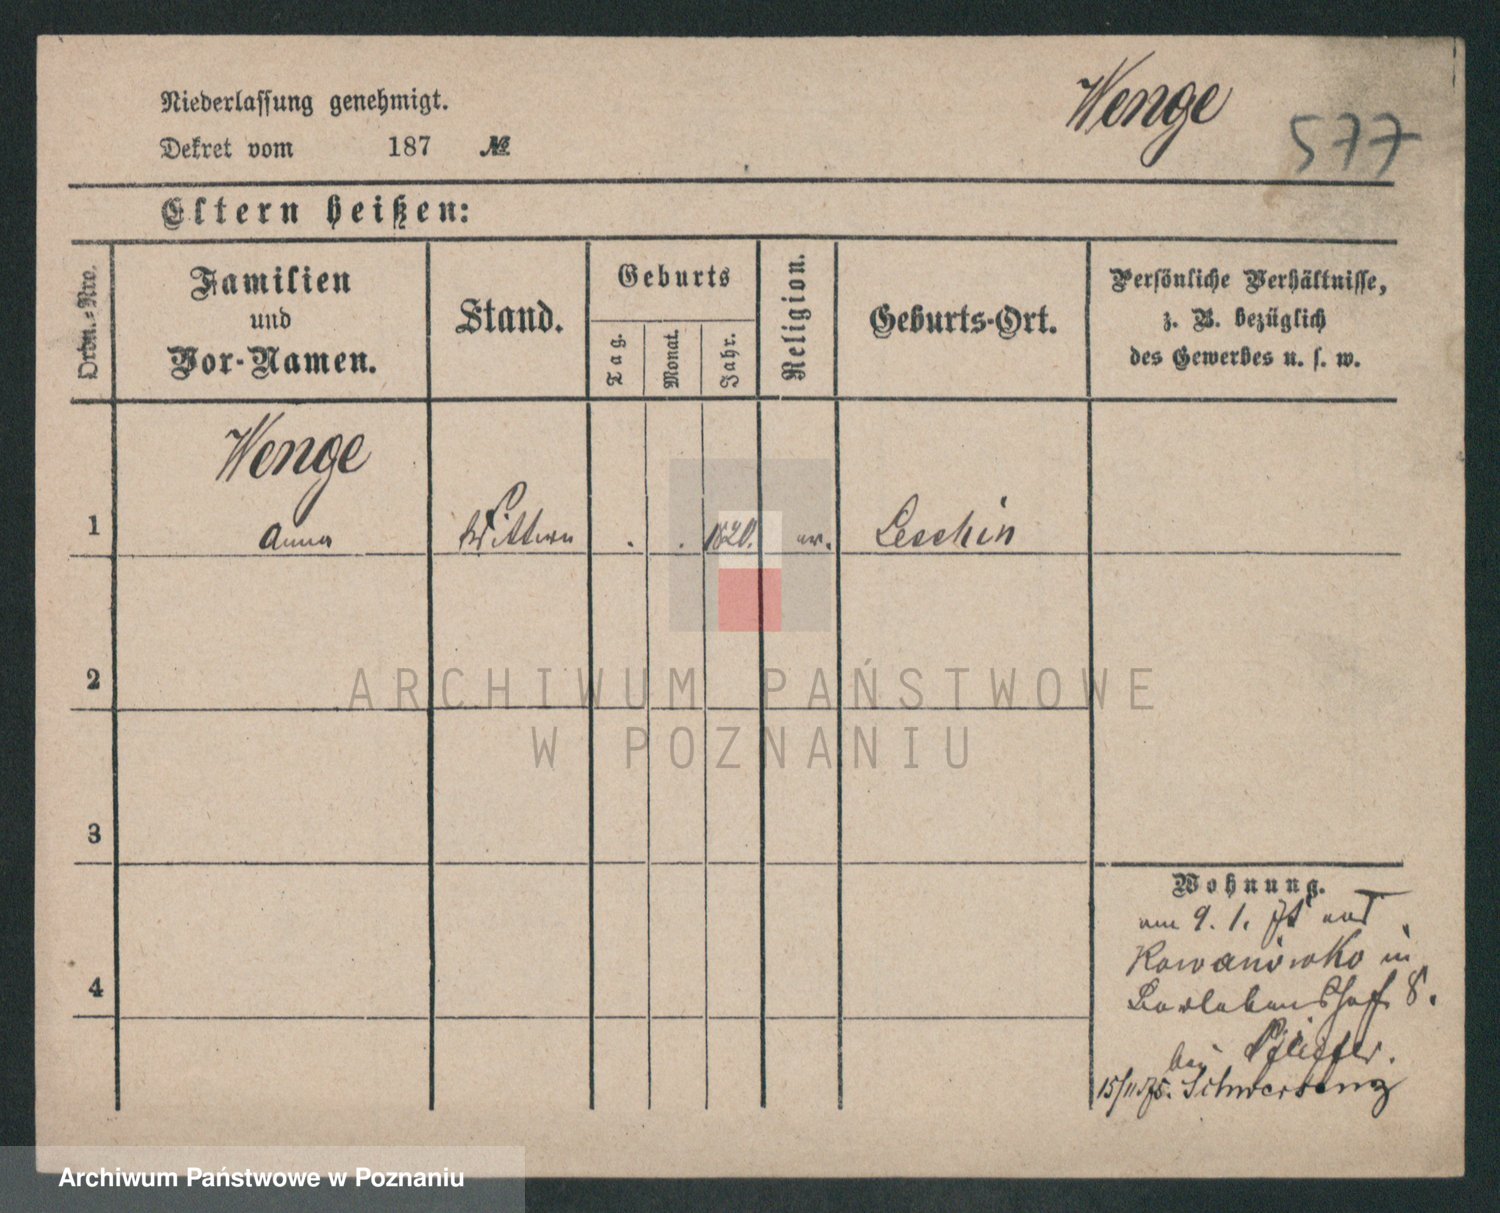 Niederlassung genehmigt.
Wenge
577
Dekret vom 187 №
Eltern heißen:
Ordn.-Nro.
Familien
und
Vor-Namen.
Stand.
Geburts
Tag.
Monat.
Jahr.
Religion.
Geburts-Ort.
Persönliche Verhältnisse,
z. B. bezüglich
des Gewerbes u. s. w.
Wenge
1 Anna Wittwe . . 1820. ev. Leschin
2
3
4
Wohnung.
am 9. 1. 75 aus
Kowanówko in
8.
bei Pfeiffer.
15/11.75. Schwersenz
ARCHIWUM PAŃSTWOWE
W POZNANIU
Archiwum Państwowe w Poznaniu